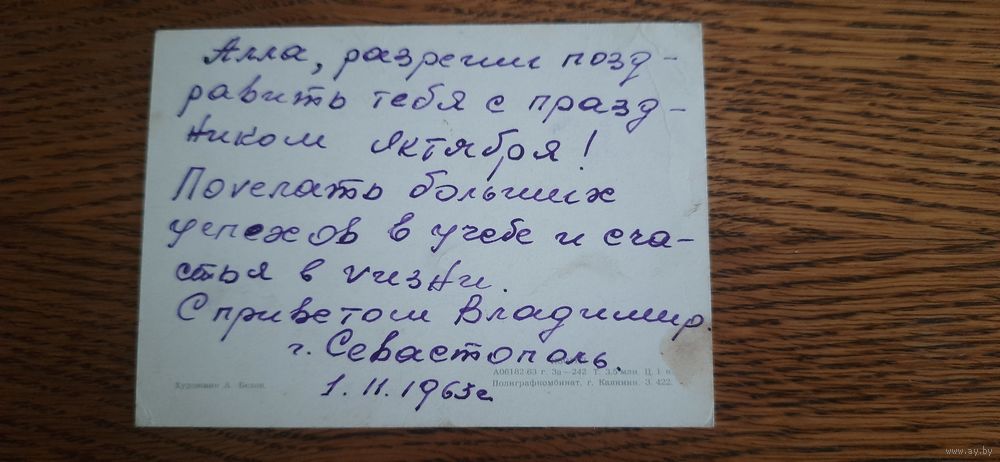 Алла, разреши позд-
равить тебя с празд-
ником Октября!
Пожелать больших
успехов в учебе и сча-
стья в жизни.
С приветом Владимир.
г. Севастополь.
1.11.1963г
Художник А. Белов.
А06182 63 г. Зв—242 Т. 3,5 млн. Ц. 1 к
Полиграфкомбинат, г. Калинин. З. 422.
www.ay.by